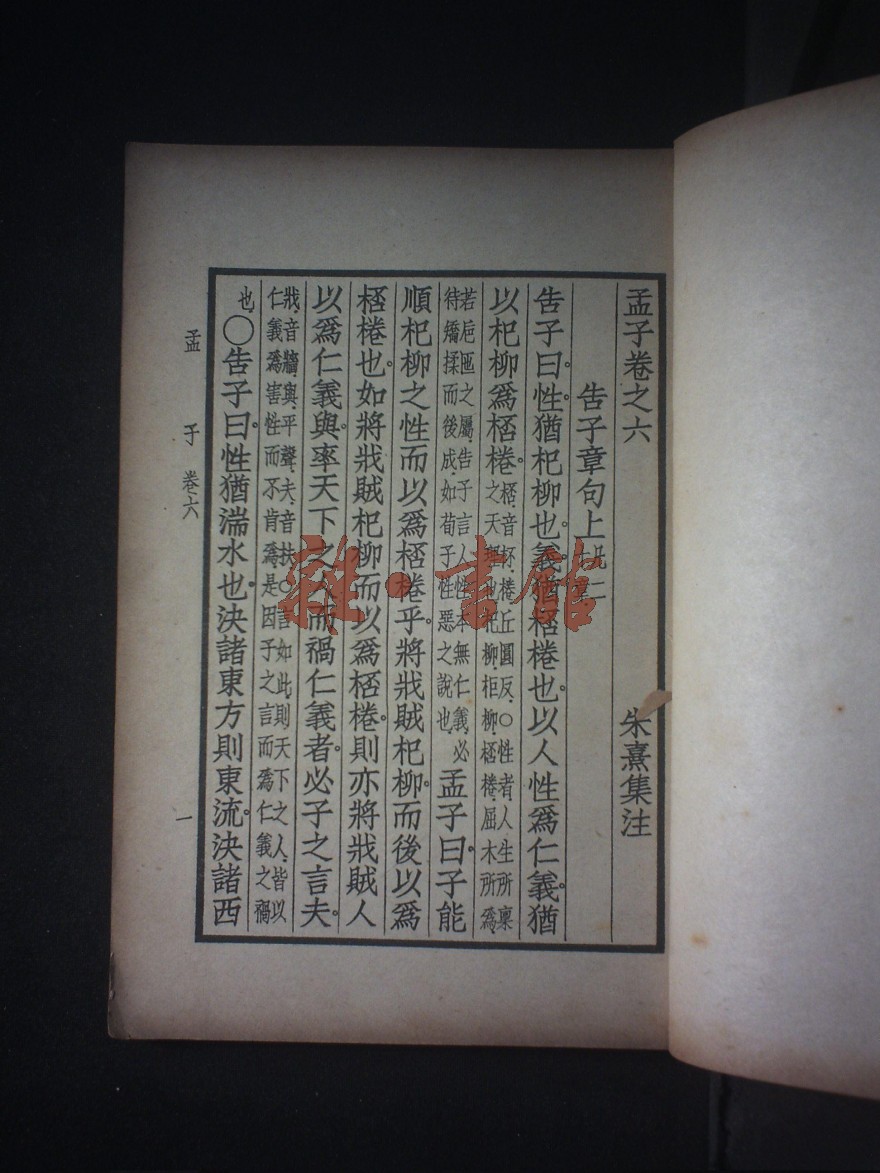 孟子卷之六
朱熹集注
告子章句上凡二章
告子曰。性猶杞柳也。義猶桮棬也。以人性爲仁義。猶
以杞柳爲桮棬。桮音杯、棬丘圓反、○性者、人生所稟之天理也、杞柳、柜柳、桮棬、屈木所爲、
若巵匜之屬、告子言人性本無仁義、必待矯揉而後成、如荀子性惡之說也、孟子曰。子能
順杞柳之性而以爲桮棬乎。將戕賊杞柳。而後以爲
桮棬也。如將戕賊杞柳而以爲桮棬。則亦將戕賊人
以爲仁義與。率天下之人而禍仁義者。必子之言夫。
戕、音牆、與、平聲、夫、音扶、○言如此、則天下之人、皆以仁義爲害性而不肯爲、是因子之言而爲仁義之禍
也、○告子曰。性猶湍水也。決諸東方則東流。決諸西
孟子 卷六
一
雜·書館